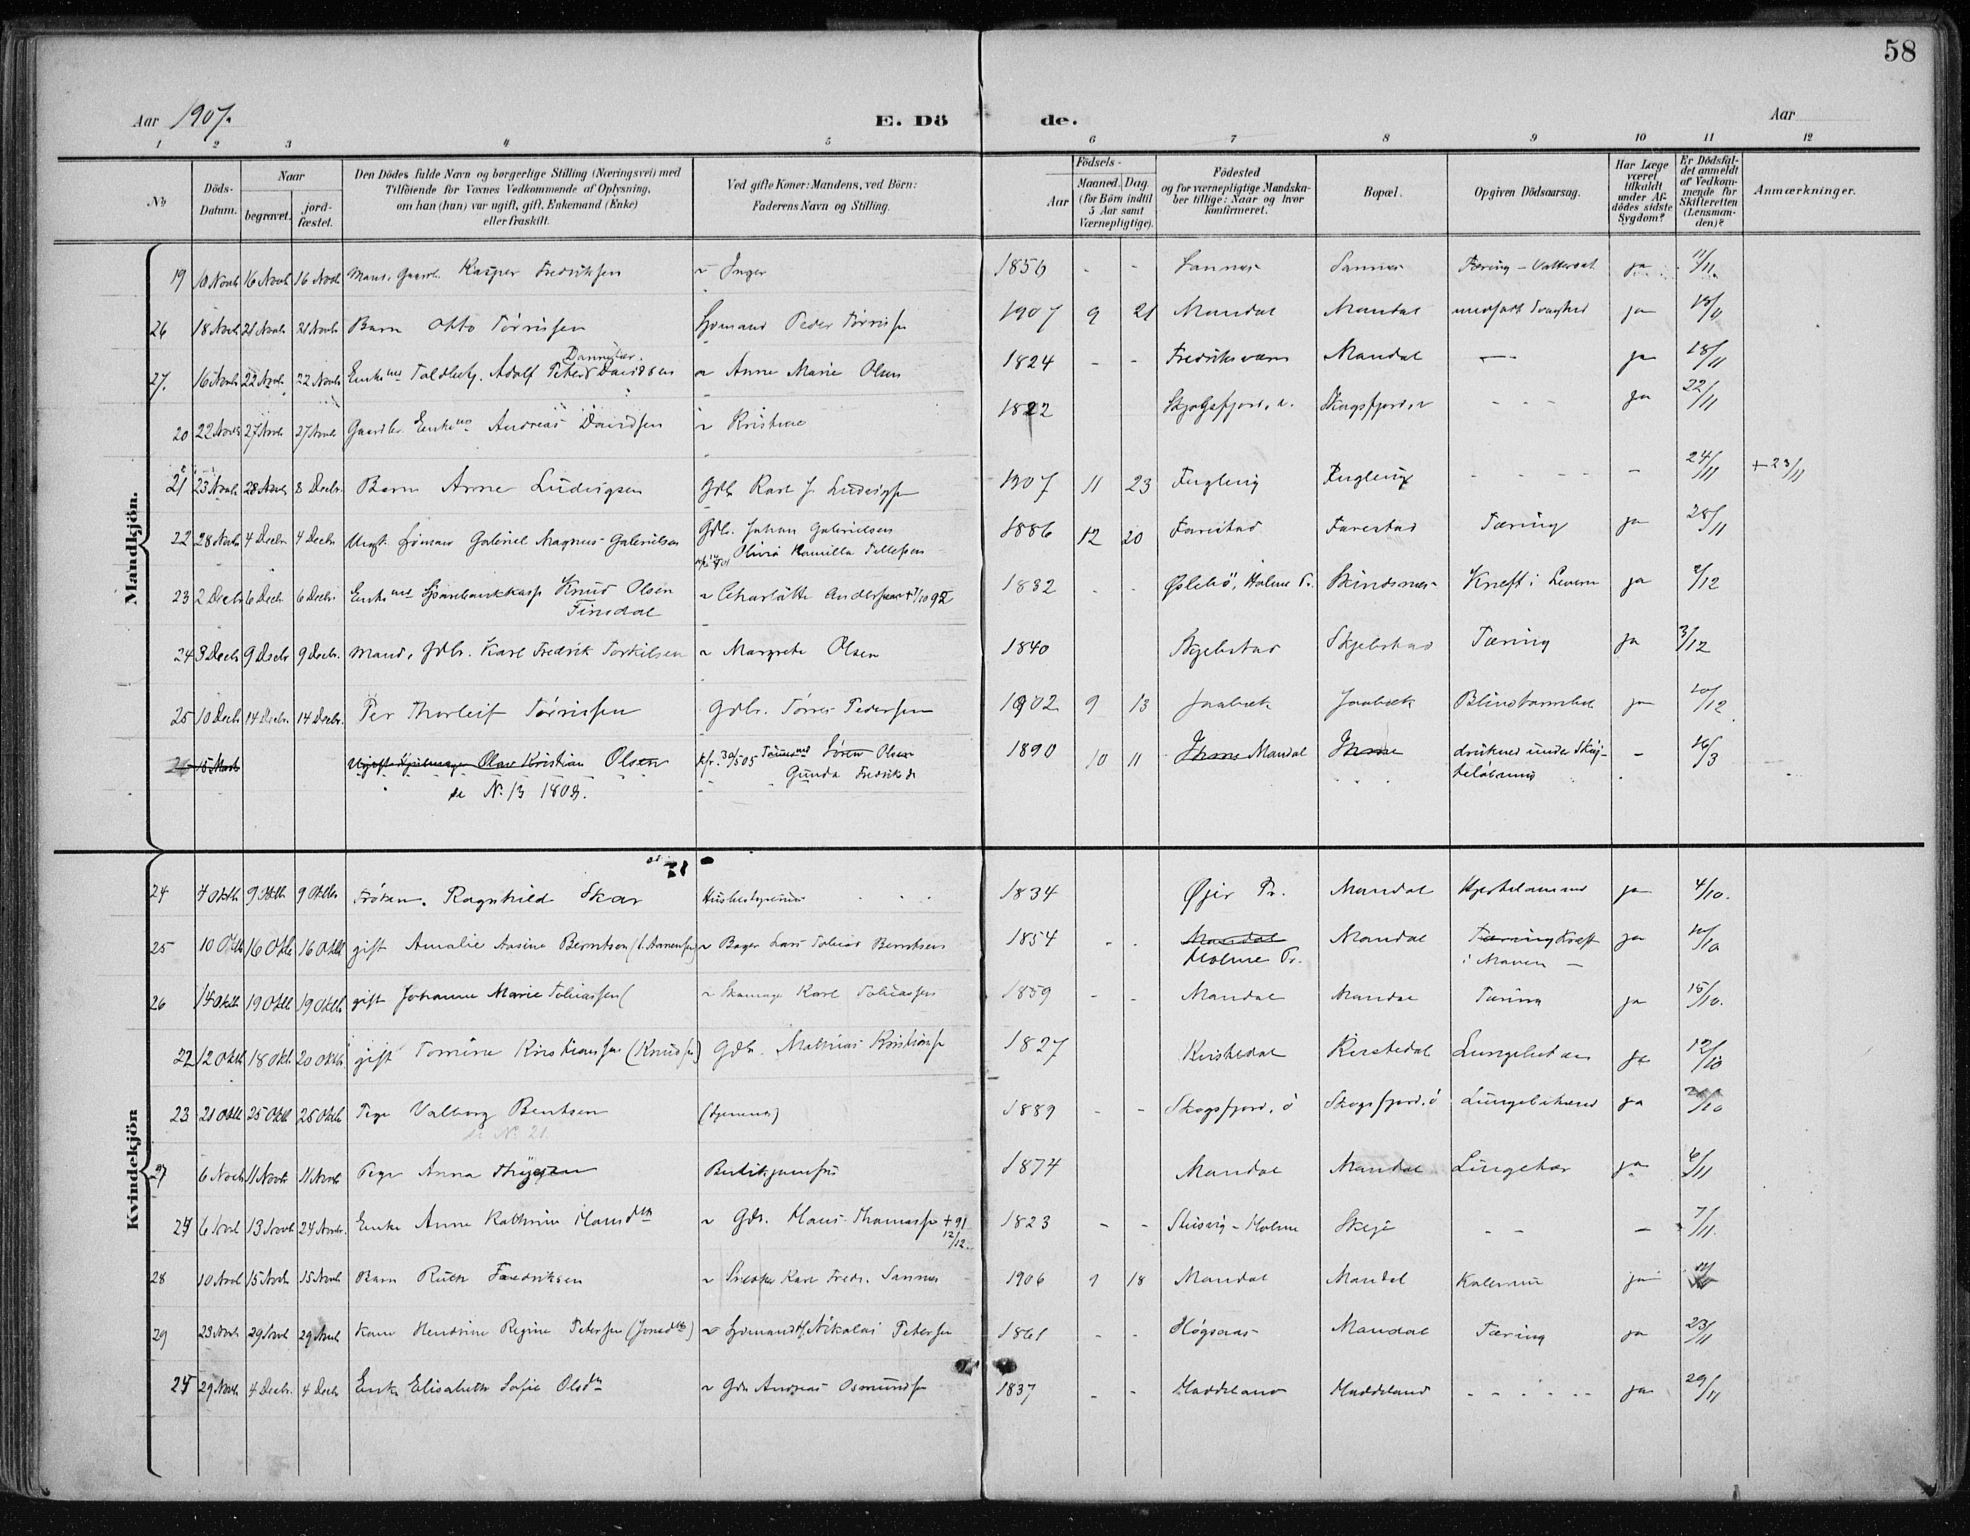 58
Aar 1907. E. Dö de. Aar
1 2 3 4 5 6 7 8 9 10 11 12
No Döds-Datum. Naar begravet. jord-fæstet. Den Dödes fulde Navn og borgerlige Stilling (Næringsvei) med Tilföiende for Voxnes Vedkommende af Oplysning, om han (hun) var ugift, gift, Enkemand (Enke) eller fraskilt. Ved gifte Koner: Mandens, ved Börn: Faderens Navn og Stilling. Födsels- Aar Maaned. Dag (for Börn indtil 5 Aar samt Værnepligtige). Födested og for værnepligtige Mandska-ber tillige: Naar og hvor konfirmeret. Bopæl. Opgiven Dödsaarsag. Har Læge været tilkaldt under Af-dödes sidste Sygdom? Er Dödsfal-det anmeldt af Vedkom-mende for Skifteretten (Lensman-den)? Anmærkninger.
Mandkjön.
19 10 Novb 16 Novb 16 Novb Mand, Gaardb. Kasper Fredriksen ~ Inger 1856 - - Sannes Sannes Tæring - Vattersot ja 11/11
26 18 Novb 21 Novb 21 Novb Barn Otto Tørrissen Sjømand Peder Tørrissen 1907 9 21 Mandal Mandal medfødt Svaghed ja 18/11
27. 16 Novb 22 Novb 22 Novb Enkem. Toldbetj. Adolf Peter Davidsen ~ Anne Marie Olsen 1824 - - Fredriksværn Mandal - ja 18/11
20 22 Novb 27 Novb 27 Novb Gaardbr. Enkem. Andreas Davidsen ~ Kristine 1822 Skogsfjord, Skogsfjord, - - - ja 22/11
21 23 Novb 28 Novb 8 Decbr. Barn Arne Ludvigsen Gdb. Karl J. Ludvigsen 1907 11 23 - - - - - 24/11 + 23/11
22 28 Novb 4 Decbr. 4 Decbr. Ungk. Sjømand Gabriel Magnus Gabrielsen Gdbr. Johan Gabrielsen
Olivia Kamilla Tellefsen 1886 12 20 Farestad Farestad Tæring ja 28/11
23 2 Decbr 6 Decbr. 6 Decbr. Enkem. Sparebankkass. Knud Olsen
Finsdal ~ Charlotte Andersen 1832 - - Øslebö, Holme Pr. Skindsnes Kræft i Leveren ja 2/12
24 3 Decbr 9 Decbr 9 Decbr. Mand, Gdbr. Karl Fredrik Torkelsen ~ Margrete Olsen 1840 Skjebstad Skjebstad Tæring ja 3/12
25 10 Decbr 14 Decbr. 14 Decbr. Per Thorleif Tørrissen Gdbr. Tørres Pedersen 1902 9 13 Jaabæk Jaabæk Blindtarmbet. ja 10/12
26 15 Marts Ugift Olav Kristian Olsen kfr. Søren Olsen
Gunda Fredriksd. 1890 10 11 Ihme Mandal Ihme druknet under Skøj-
teløbning - 16/3
se No. 13 1908.
Kvindekjön
24 4 Oktb 9 Oktb 9 Oktb Frøken. Ragnhild Skar Husbestyrerinde 1834 Øjer Pr. Mandal Hjertelammelse ja 4/10.
25 10 Oktb 16 Oktb 16 Oktb gift Amalie Aasine Berntsen ~ Bager Lars Tobias Berntsen 1854 - - Mandal
Holme Pr. Mandal Tæring Kræft
i Maven - ja 10/10
26 14 Oktb 19 Oktb 19 Oktb gift Johanne Marie Tobiassen ~ Skomager Karl Tobiassen 1859 - - Mandal Mandal Tæring ja 15/10.
22 12 Oktb 18 Okt. 20 Oktb gift Tomine Kristiansen (Knudsen) Gdb. Mathias Kristiansen 1827 Kirstedal Kirstedal Lungebet. ja 12/10
23 21 Oktb 25 Oktb 25 Oktb Pige Valborg Bentsen (tjenende) 1889 - - Skogsfjord, ö Skogsfjord, ö Lungebetændelse ja /10
se No. 21
27 6 Novb 11 Novb 11 Novb Pige Anna Thygesen Butikjomfru 1874 Mandal Mandal Lungetær. ja 6/11
24 6 Novb 13 Novb 24 Novb. Enke Anne Kathrine Hansdtr ~ Gdb. Hans Thomassen + 91
12/12. 1823 - - Stusvig - Holme Skeje - - - 7/11.
28 10 Novb 15 Novb 15 Novb Barn Ruth Fredriksen ~ Snedker Karl Fredr. Sannes 1906 1 18 Mandal Mandal Kolerine ja
29 23 Novb 29 Novb 29 Novb Kone Hendrine Regine Petersen ~ Sjømand Nikolai Petersen 1861 - - Høgsaas Mandal Tæring ja 23/11
25 29 Novb 4 Decbr. 4 Decb Enke Elisabeth Sofie Olsdtr ~ Gdb Andreas Osmundsen 1837 - - Haddeland Haddeland - - - - ja 29/11